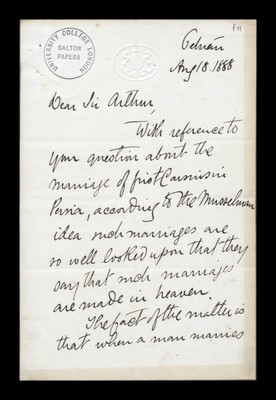 UNIVERSITY COLLEGE LONDON
GALTON
PAPERS
F11
Tehran
Aug 18. 1888
Dear Sir Arthur,
With reference to
your question about the
marriage of first Cousins in
Persia, according to the Mussulman
idea such marriages are
so well looked upon that they
say that such marriages
are made in heaven.
The fact of the matter is
that when a man marries